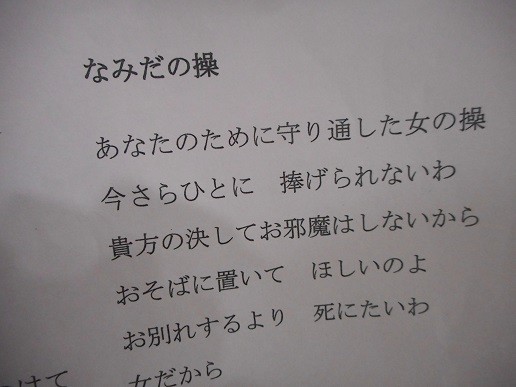 なみだの操
あなたのために守り通した女の操
今さらひとに　捧げられないわ
貴方の決してお邪魔はしないから
おそばに置いて　ほしいのよ
お別れするより　死にたいわ
女だから
けて